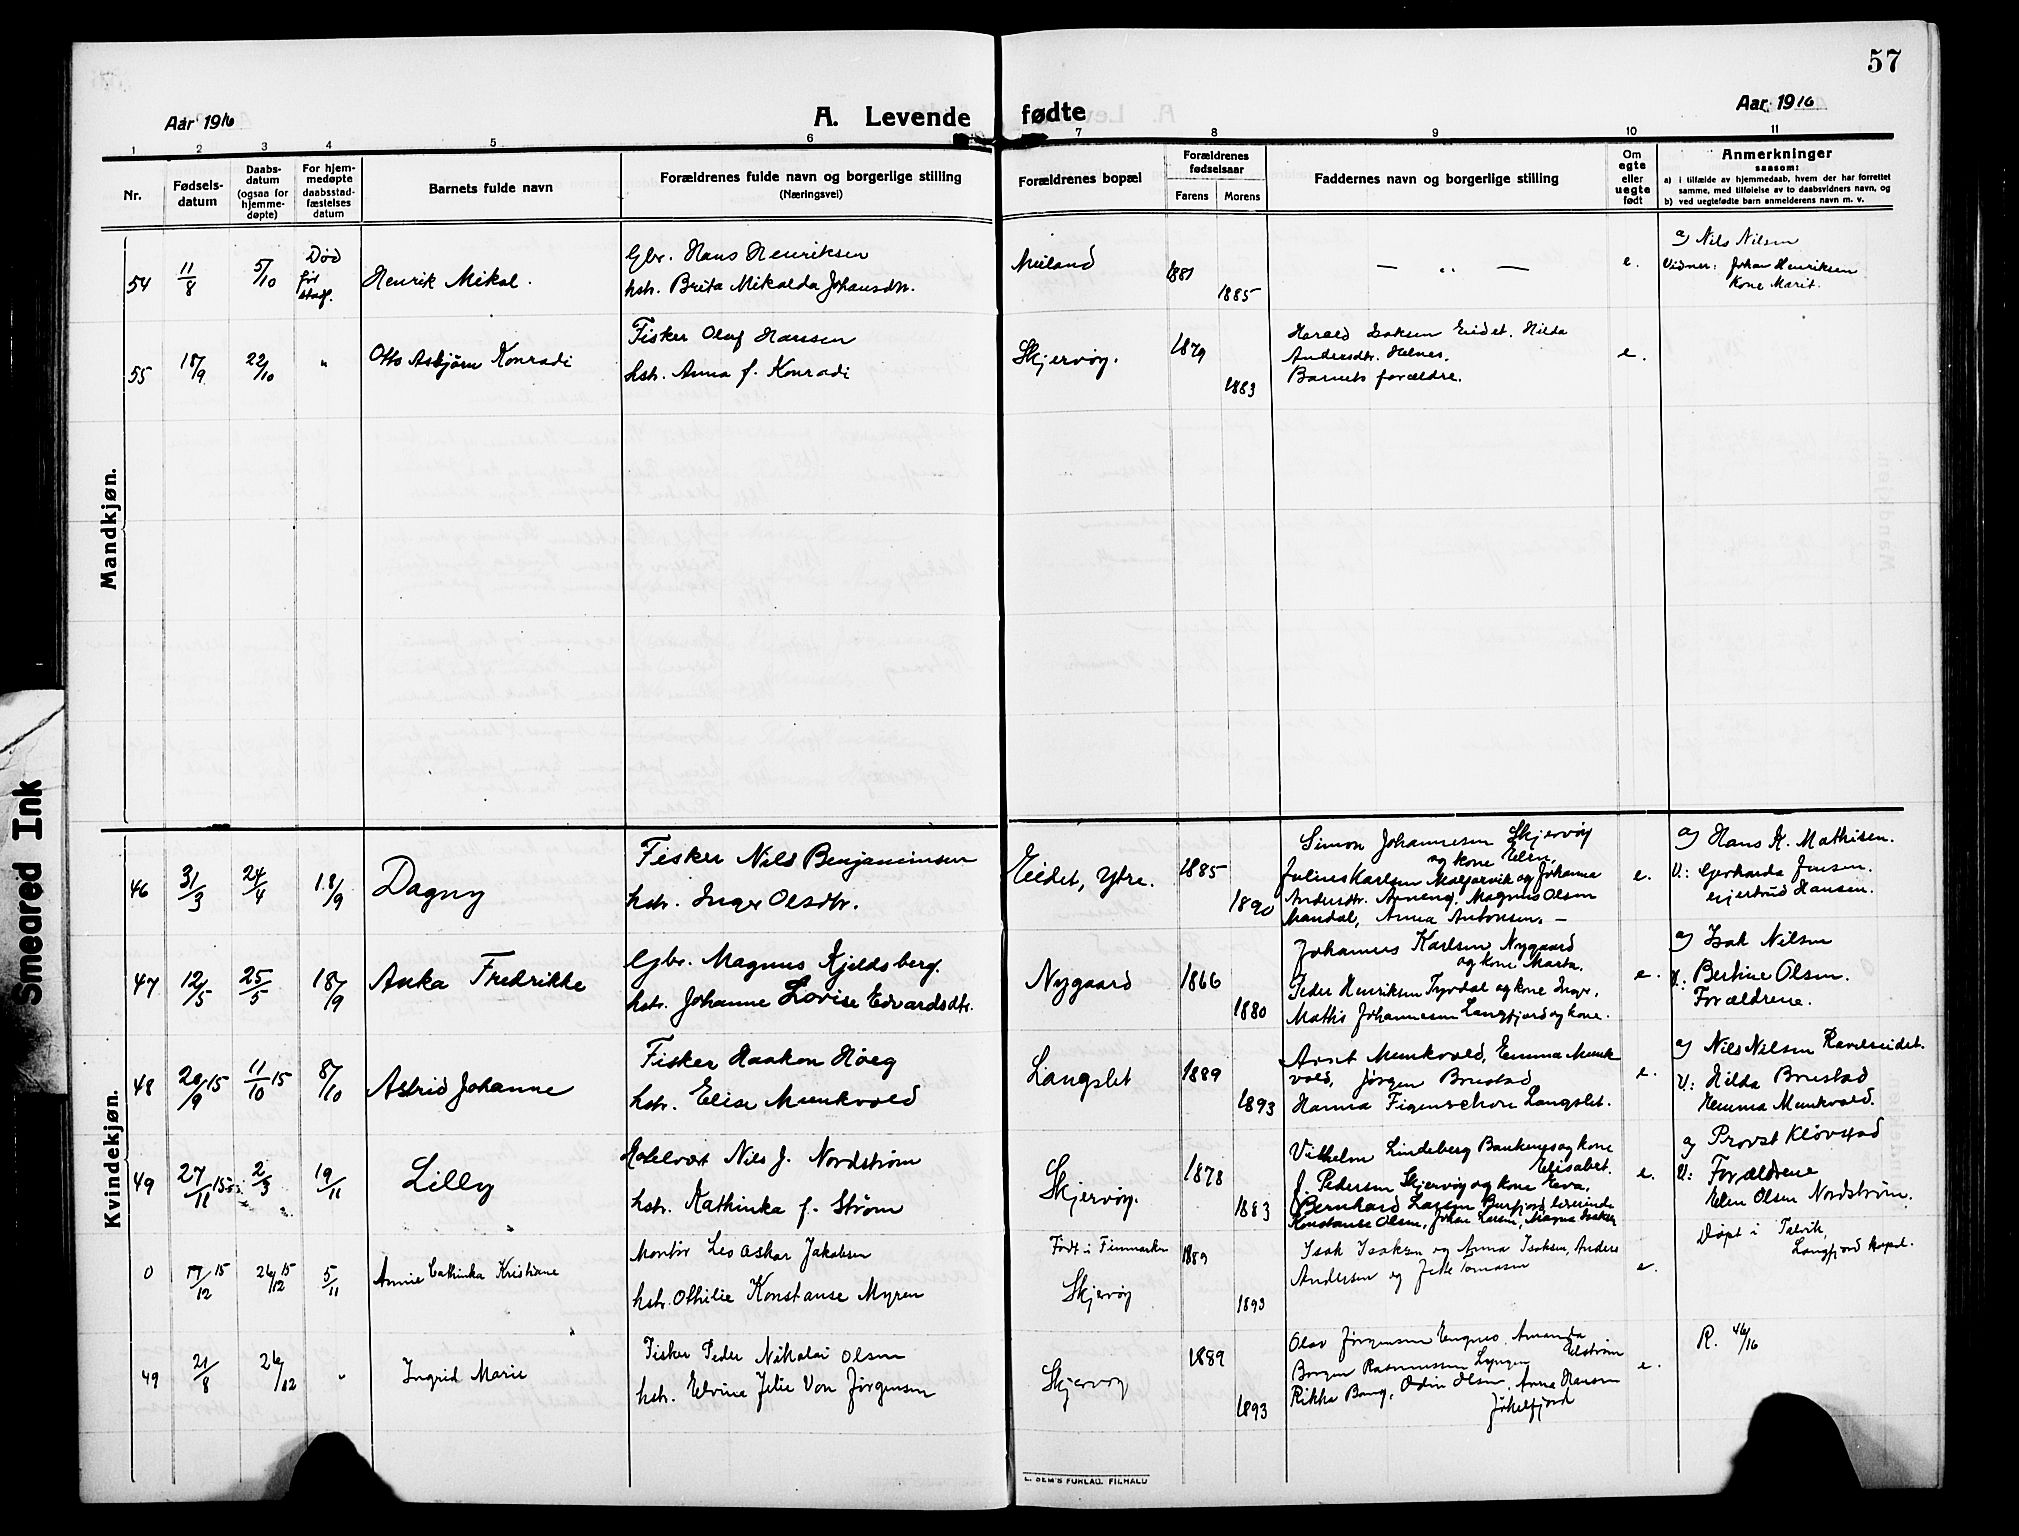 57
Aar 1916
A. Levende fødte
Aar 1916
1 2 3 4 5 6 7 8 9 10 11
Nr.
Fødsels-
datum
Daabs-
datum
(ogsaa for
hjemme-
døpte)
For hjem-
medøpte
daabsstad-
fæstelses
datum
Barnets fulde navn
Forældrenes fulde navn og borgerlige stilling
(Næringsvei)
Forældrenes bopæl
Forældrenes
fødselsaar
Farens Morens
Faddernes navn og borgerlige stilling
Om
egte
eller
uegte
født
Anmerkninger
saasom:
a) i tilfælde av hjemmedaab, hvem der har forrettet
samme, med tilføielse av to daabsvidners navn, og
b) ved uegtefødte barn anmelderens navn m. v.
Mandkjøn.
54 11/8 5/10 Død
før
stadf.
Henrik Mikal.
Gbr. Hans Henriksen
hstr. Brita Mikalda Johansdtr.
Meiland
1881
1885
— „ —
e.
a) Nils Nilsen
Vidner: Johan Henriksen
kone Marit.
55 18/9 22/10 "
Otto Asbjørn Konradi
Fisker Oluf Hansen
hstr. Anna f. Konradi
Skjervøy.
1879
1883
Harald Isaksen Eidet, Hilda
Andersdtr. Helnes.
Barnets forældre.
e.
Kvindekjøn.
46 31/3 24/4 18/9
Dagny
Fisker Nils Benjaminsen
hstr. Inger Olsdtr.
Eidet, Ytre.
1885
1890
Simon Johannesen Skjervøy
og kone Elen,
Julius Karlsen og Johanna
Andersdtr. Magnus Olsen
Mandal, Anna Antonsen. —
e.
a) Hans K. Mathisen.
V: Gerharda Jensen.
Gjertrud Hansen.
47 12/5 25/5 18/9
Anka Fredrikke
Gbr. Magnus Kjeldsberg.
hstr. Johanne Lovise Edvardsdtr.
Nygaard
1866
1880
Johannes Karlsen Nygaard
og kone Marta.
Peder Henriksen og kone Inger,
Mathis Johannesen Langfjord og kone.
e.
a) Isak Nilsen
V: Bertine Olsen.
Forældrene.
48 20/9 15 11/10 15 8/10
Astrid Johanne
Fisker Haakon Høeg
hstr. Elise Munkvold
Langslet
1889
1893
Munkvold, Emma Munk
vold, Jørgen Brustad
Hanna Figenschou Langslet.
e.
a) Nils Nilsen Ravelseidet.
V: Hilda Brustad
Hemma Munkvold.
49 27/11 15 2/3 19/11
Lilly
Hotelvært Nils J. Nordstrøm
hstr. Kathinka f. Strøm
Skjervøy.
1878
1883
Vilhelm Lindeberg og kone
Elisabet.
J. Pedersen Skjervøy og kone Eva.
Bernhard Larsen Burfjord, lærerinde
Konstanse Olsen, Johan Larsen, Magna Isaksen
e.
a) Provst Kløvstad
V: Forældrene
Elen Olsen Nordstrøm.
0 17/12 15 26/12 15 5/11
Annie Cathinka Kristiane
Montør Leo Oskar Jakobsen
hstr. Othilie Konstanse Myren
Født i Finmarken
Skjervøy
1889
1893
Isak Isaksen og Anna Isaksen, Anders
Andersen og Jette Tomasen
e.
Døpt i Talvik,
Langfjord kapel.
49 21/8 26/12 "
Ingrid Marie
Fisker Peder Nikolai Olsen
hstr. Elvine Jelie Von Jørgensen
Skjervøy
1889
1893
Olav Jørgensen Engnes, Amanda
Elstrøm
Borgen Rasmussen Lyngen
Rikka Bang, Odin Olsen, Anna Hansen
Jøkelfjord
e.
R. 46/16
E. SEM'S FORLAG. FILHALD
Smeared Ink